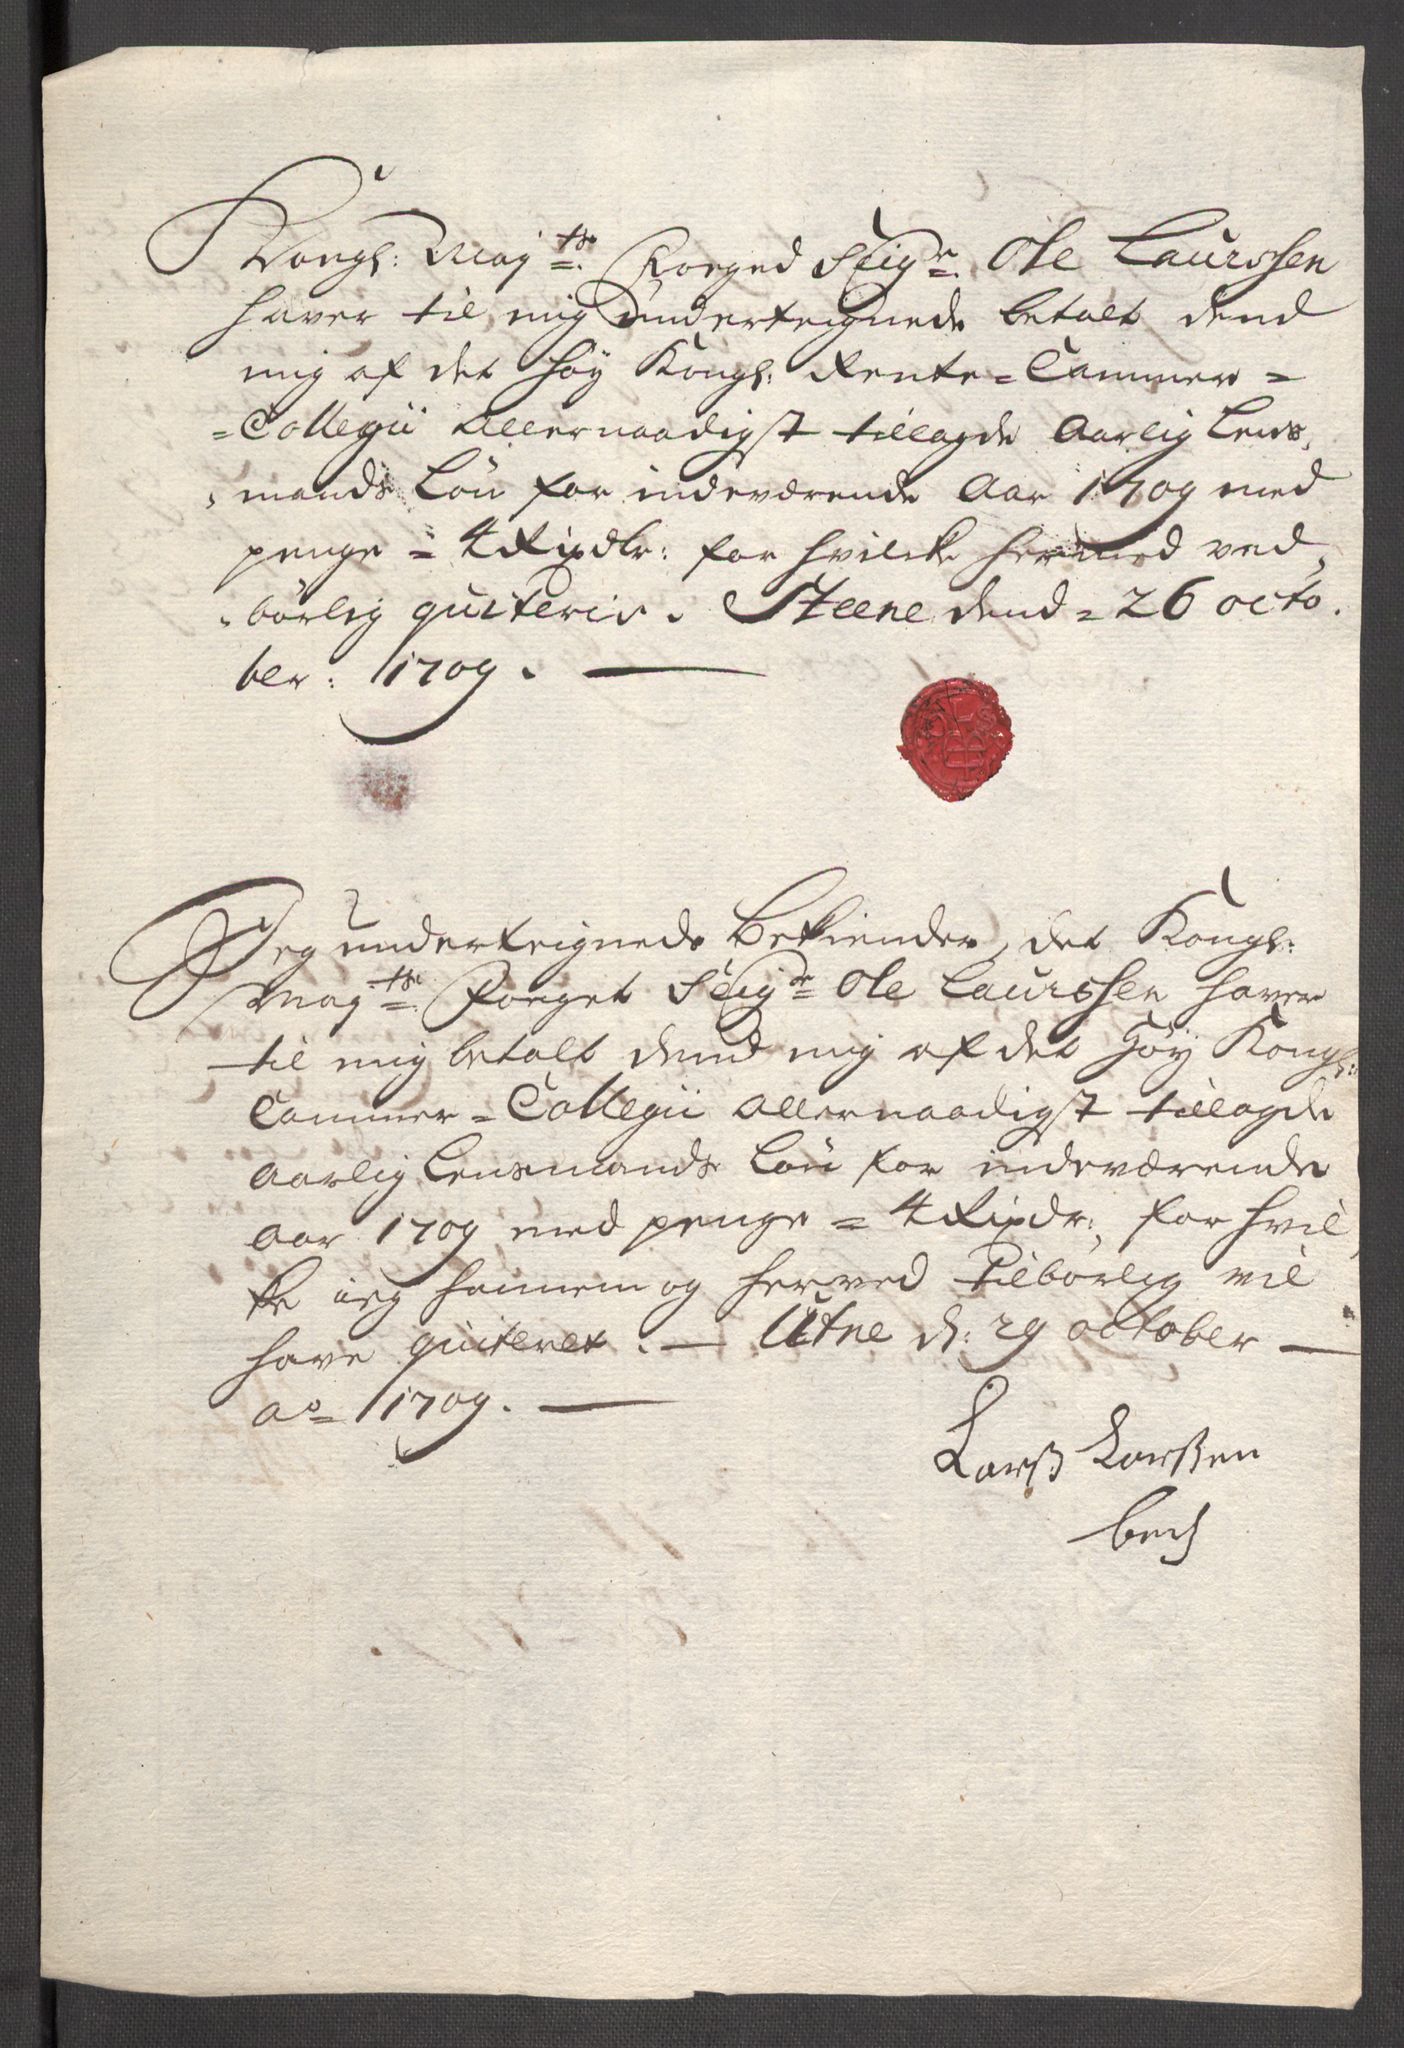 Kongl: Maytts: Foeged Seigr. Ole Laurssen
hafver til mig underteignede betalt dend
mig af det høy Kongl: Rente=Cammer=
=Collegii allernaadigst tillagde Aarlig Lens,
,mands Løn for indeværende Aar 1709 med
penge = 4 Rixdlr: for hvilcke hermed ved,
,børlig quiteris. Steene dend = 26 octo.
ber: 1709.
Jeg underteignede Bekiender, det Kongl:
Maytts: Foeget Seigr Ole Laurssen hafver
til mig betalt dend mig af det Høy Kongl:
Cammer=Collegii allernaadigst tillagde
Aarlig Lensmands Løn for indeværende
Aar 1709 med penge = 4 Rixdr:, for hvil,
ke ieg hannem og herved tilbørlig vil
hafve quiteret. — Utne d: 29 october —
Ao= 1709.
Larß Larßen